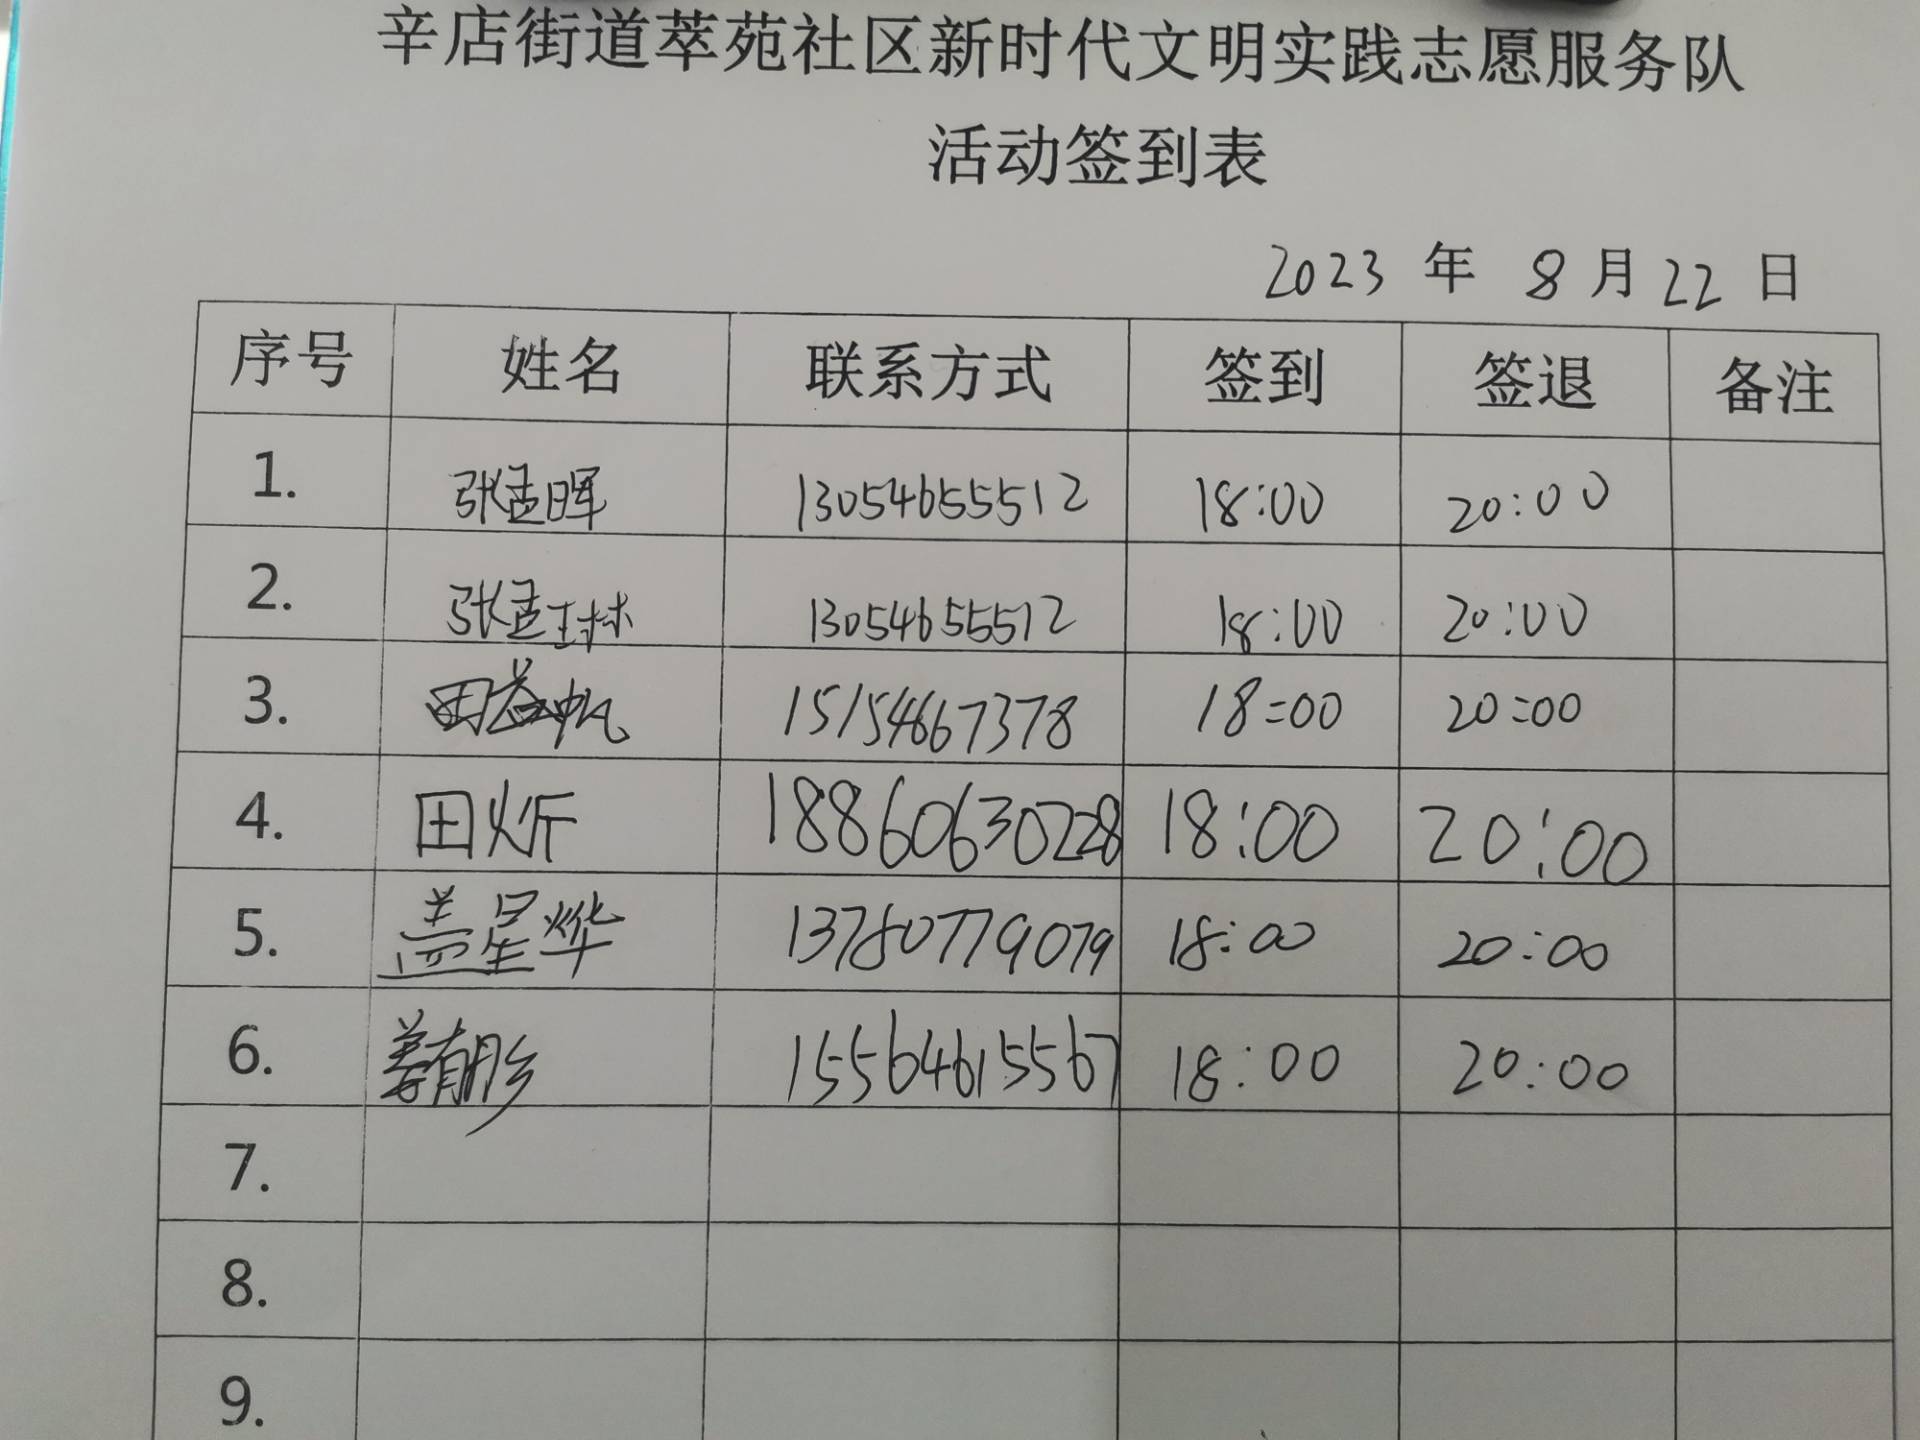 辛店街道萃苑社区新时代文明实践志愿服务队
活动签到表
2023 年 8 月 22 日
序号 姓名 联系方式 签到 签退 备注
1. 张孟晖 13054655512 18:00 20:00
2. 张孟琳 13054655512 18:00 20:00
3. 田益帆 15154667378 18:00 20:00
4. 田炘 18860630228 18:00 20:00
5. 盖星烨 13780779079 18:00 20:00
6. 姜有彤 15564615567 18:00 20:00
7.
8.
9.